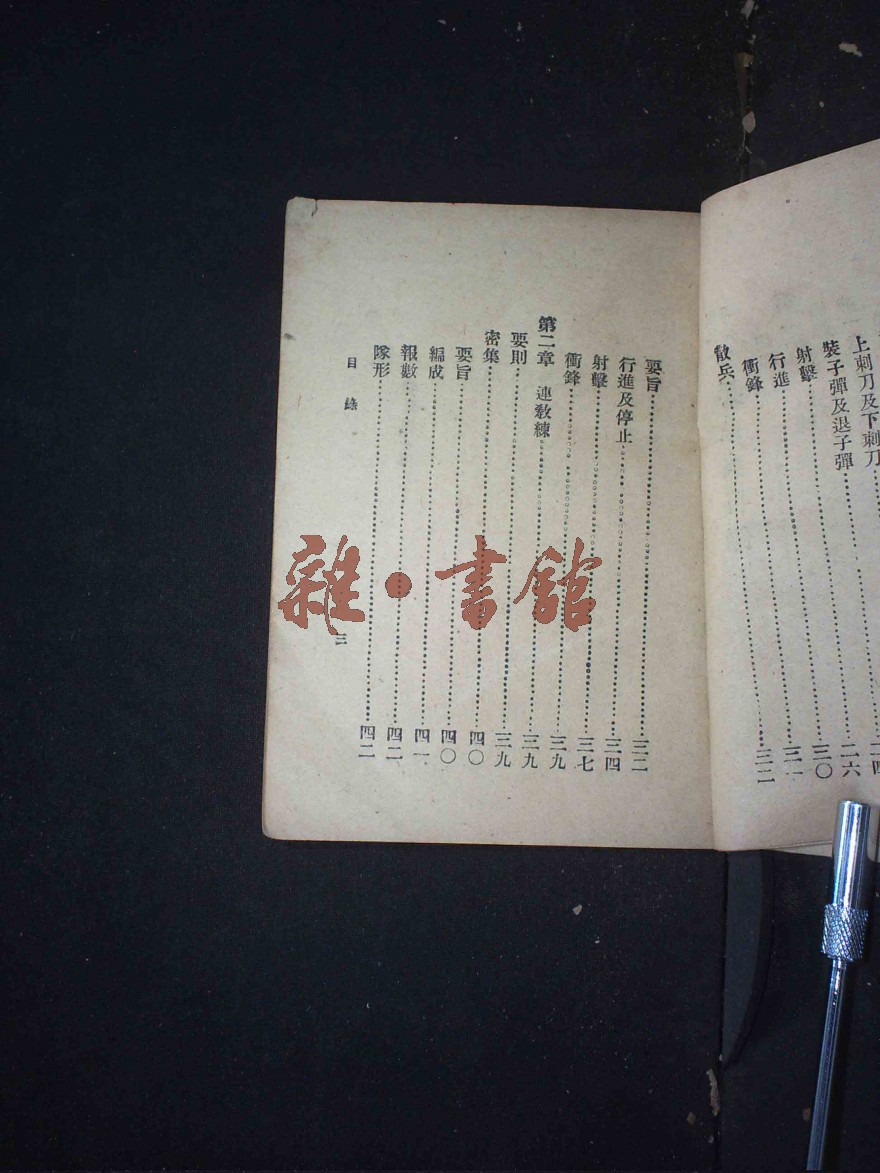 上刺刀及下刺刀……四
裝子彈及退子彈……二六
射擊……三〇
行進……三一
衝鋒……三二
散兵……
要旨……三二
行進及停止……三四
射擊……三七
衝鋒……三九
第二章 連教練……三九
要則……三九
密集……四〇
要旨……四〇
編成……四一
報數……四二
隊形……四二
目錄
三
雜·書館